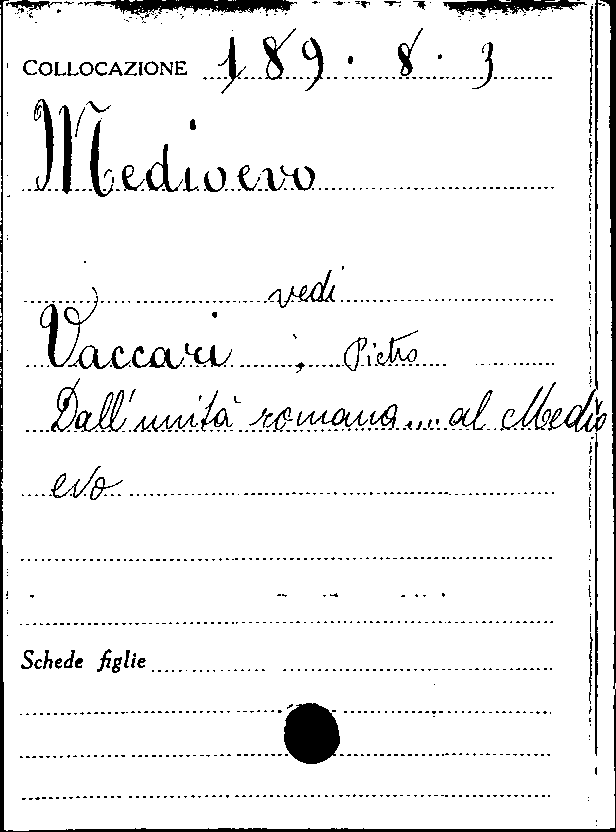 COLLOCAZIONE 189. 8. 3
Medioevo
vedi
Vaccari, Pietro
Dall'unità romana.... al Medio
evo
Schede figlie